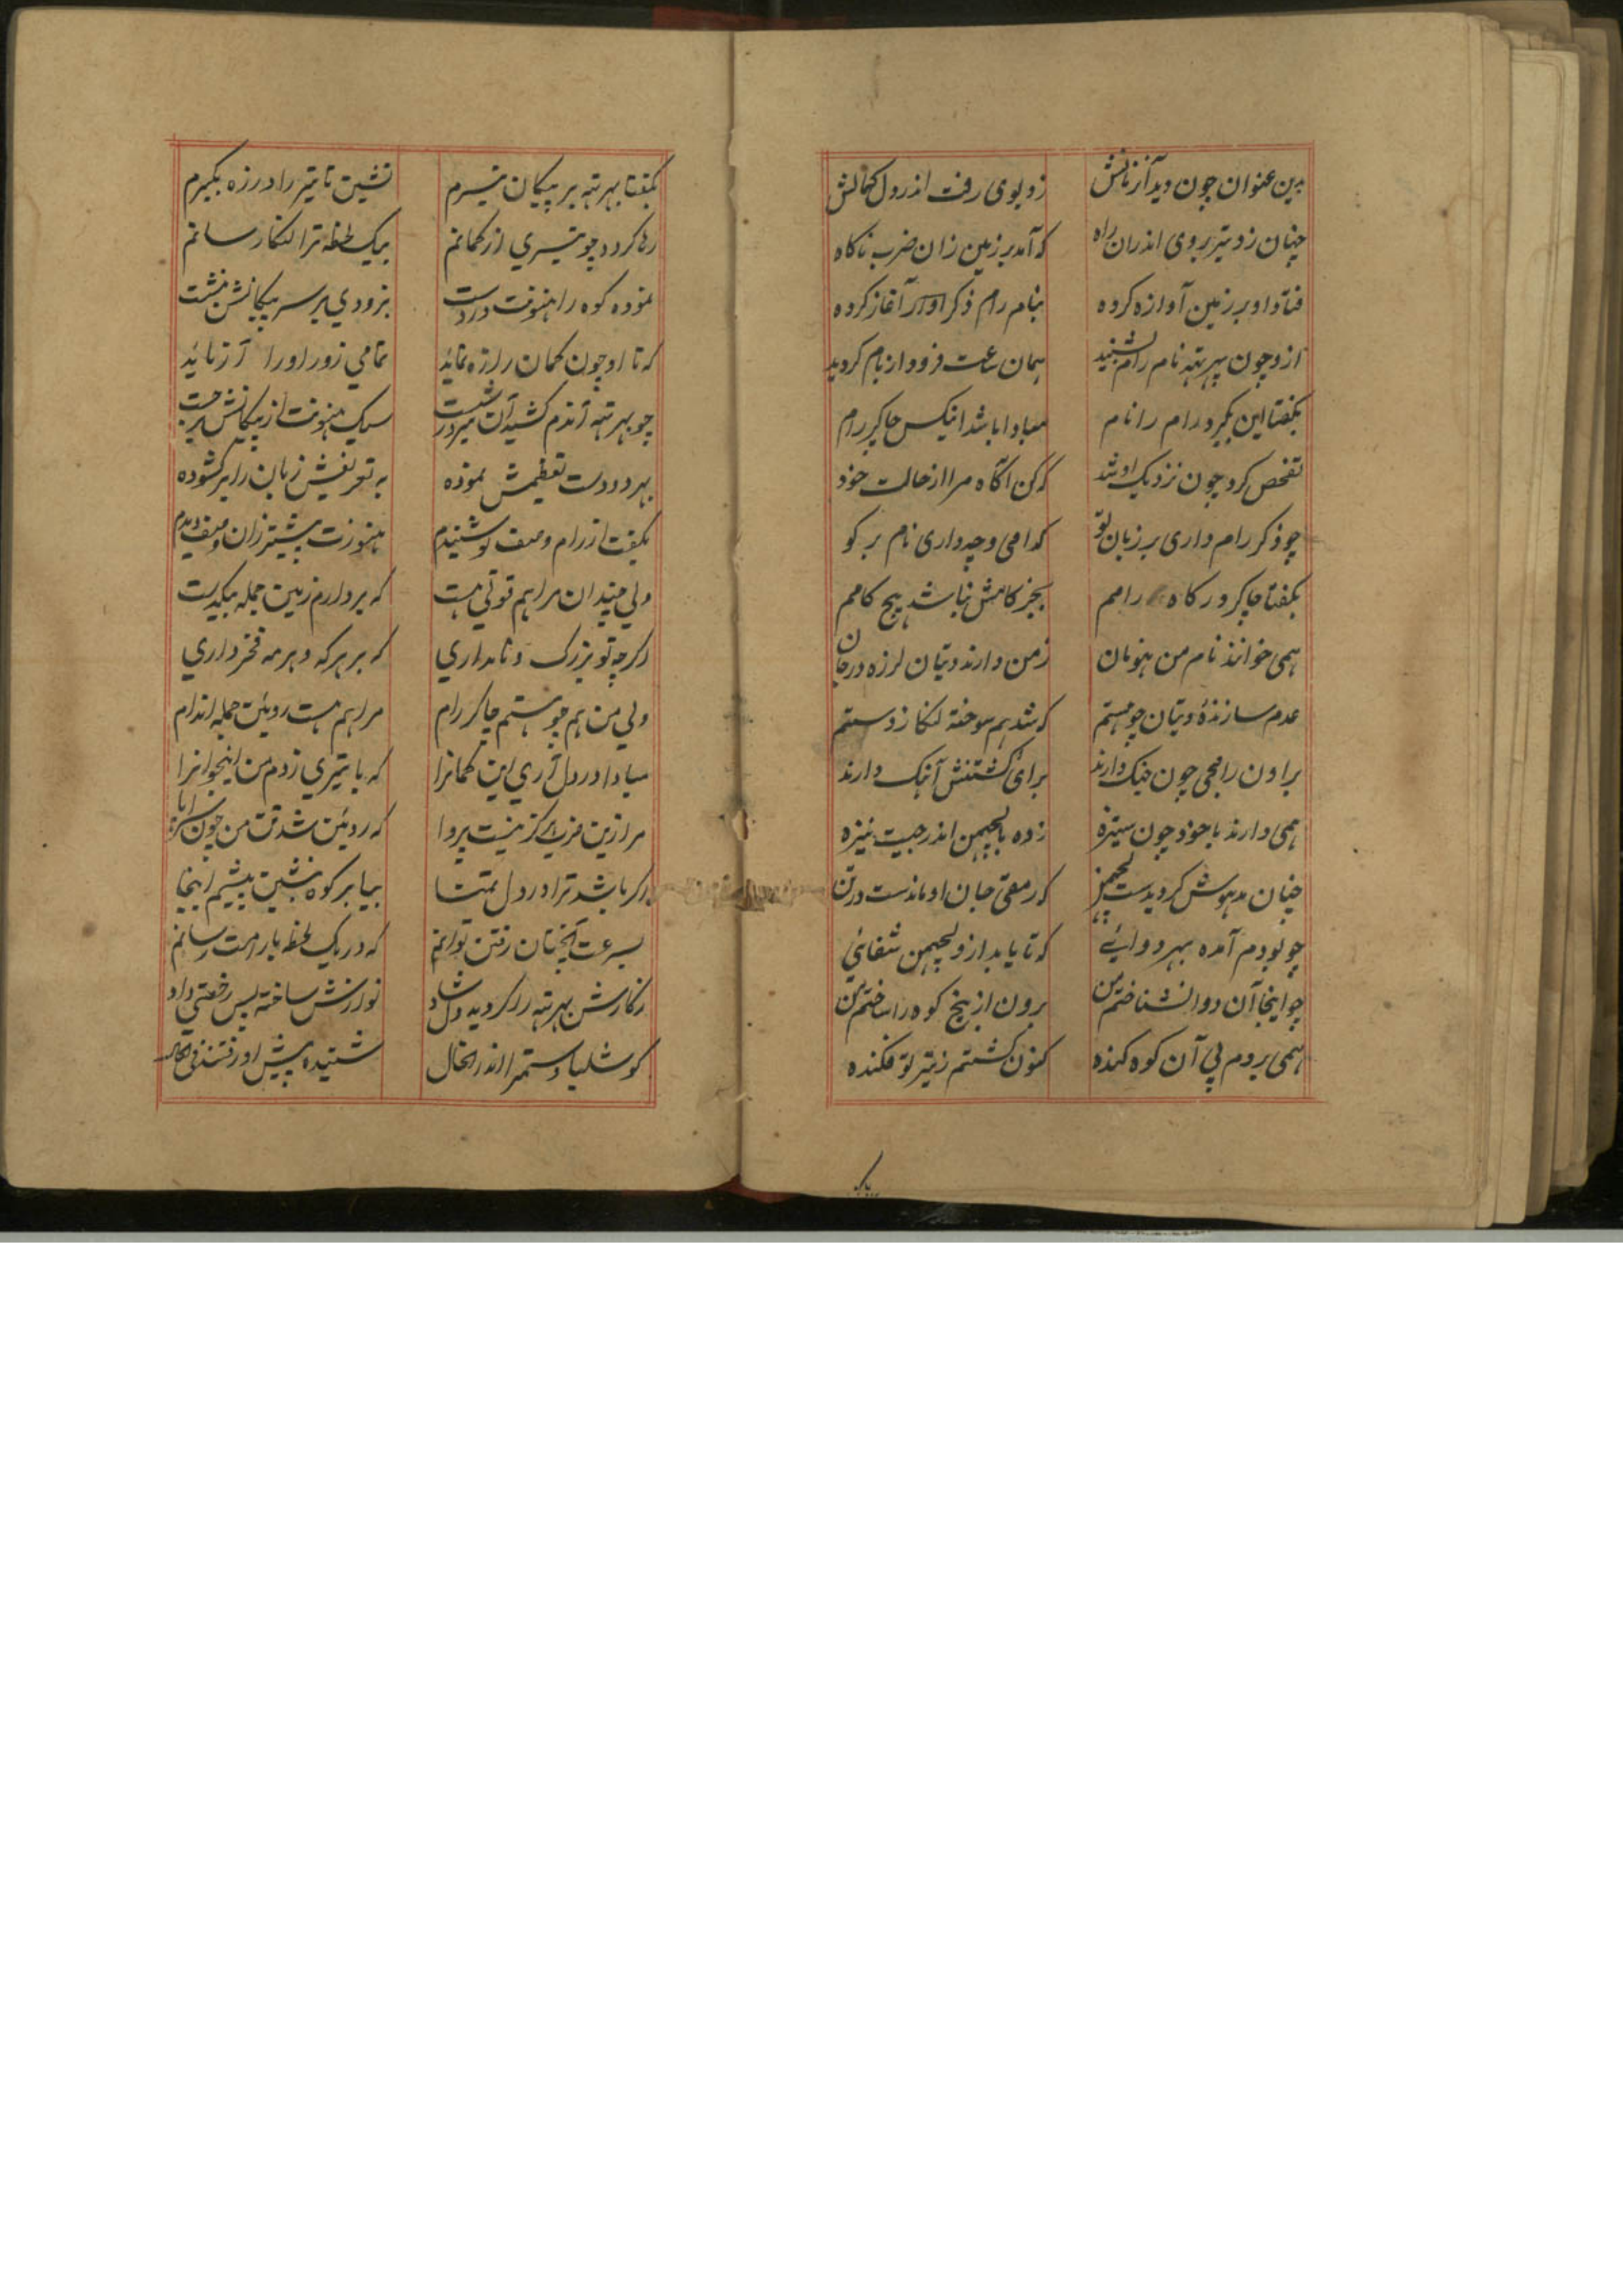 بدین عنوان چون دید آن زمانش زد بوی رفت اندر دل کمانش
چنان زد تیر بروی اندران راه که آمد بر زمین زان ضرب ناکاه
فتاد او بر زمین آوازه کرده بنام رام ذکر آغاز کرده
ازو چون بهرتهه نام رام بشنید همان ساعت فرود از بام کردید
بکفتا این بکیرد رام را نام مبادا باشد اینکس چاکر رام
تفحص کرد چون نزدیک او شد که کن آکاه مرا از حالت خود
چو ذکر رام داری بر زبان تو کدامی و چه داری نام بر کو
بکفتا چاکر درکاه رامم بجز کامش نباشد هیچ کامم
همی خوانند نام من هنومان ز من دارند دیتان لرزه در جان
عدم سازندهٔ دیتان چو هستم که شد هم سوخته لنکا ز دستم
براون رامجی چون جنک دارند برای کشتنش آهنک دارند
همی دارند با خود چون ستیزه زده بالچهمن اندر جیت نیزه
چنان مدهوش کردیدست لچهمن که رمقی جان او ماندست در تن
چو بودم آمده بهر دوائے که تا یابد ازو لچهمن شفائی
چو اینجا آن دوا نشناختم من برون از بیخ کوه را ساختم من
همی بردم پی آن کوه کنده کنون کشتم ز تیر تو فکنده
بیا بر
بکفتا بهرتهه بر پیکان تیرم نشین تا تیر را در زه بکیرم
رها کردد چو تیری از کمانم بیک لحظه ترا لنکا رسانم
نموده کوه را هنونت در دست بزودی بر سر پیکانش بنشست
که تا او چون کمان را زه نماید تمامی زور او را آزماید
چو بهرتهه آندم کشید آن تیر در شست سبک هنونت از پیکانش برجست
بهر دو دست تعظیمش نموده به تعریفش زبان را برکشوده
بکفت از رام وصف تو شنیدم هنوزت بیشتر زان وصف دیدم
ولی چندان مرا هم قوتی هست که بردارم زمین جمله بیکدست
اکرچه تو بزرک و نامداری که بر هر که و بر مه فخر داری
ولی من هم چو هستم چاکر رام مرا هم هست روئین جمله اندام
مبادا در دل آری این کمانرا که با تیری زدم من اینجوانرا
مرا زین ضرب هرکز نیست پروا که روئین شد تن من چون سراپا
اکر باشد ترا در دل تمنا بیا بر کوه بنشین پیشم اینجا
بسرعت آنچنان رفتن توانم که در یک لحظه با رامت رسانم
ز کارش بهرتهه را کردیده دل شاد نوازش ساخته پس رخصتی داد
کوشلیا و سمترا اندر انحال شنیده پیش او رفتند فی الحال